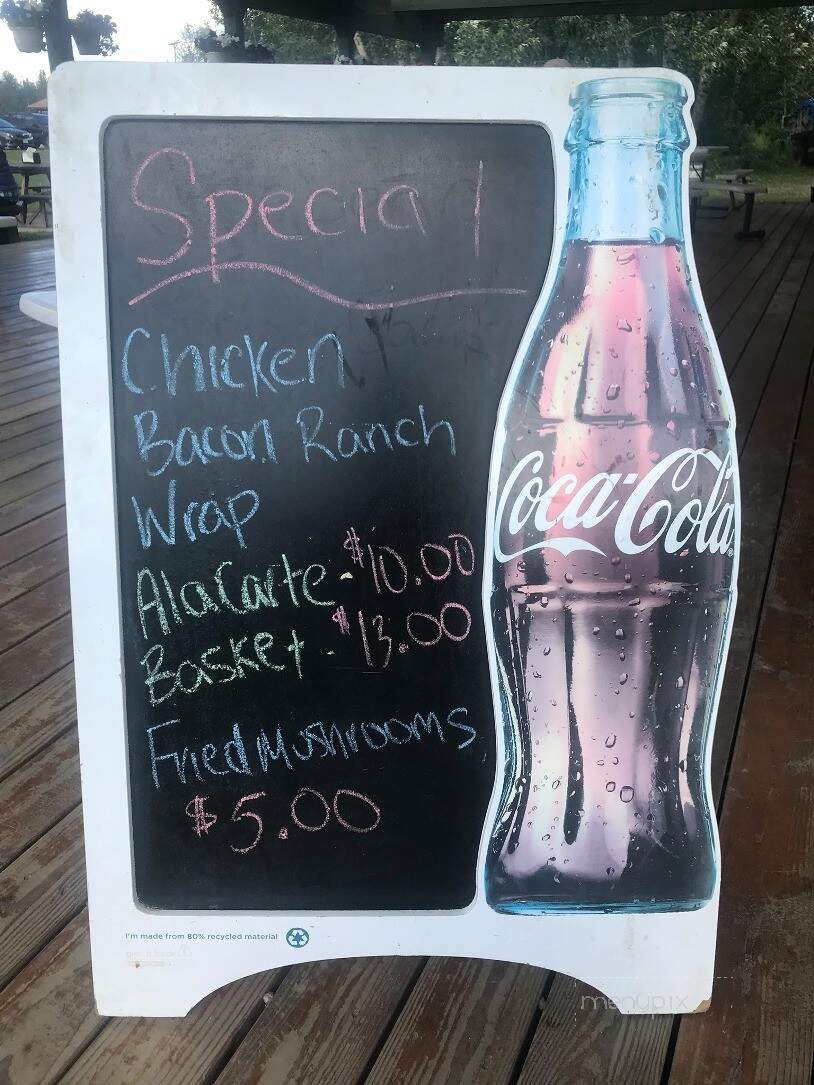 Special
Chicken
Bacon Ranch
Wrap
Ala Carte - $10.00
Basket - $13.00
Fried Mushrooms
$5.00
Coca-Cola
I'm made from 80% recycled material
menupix